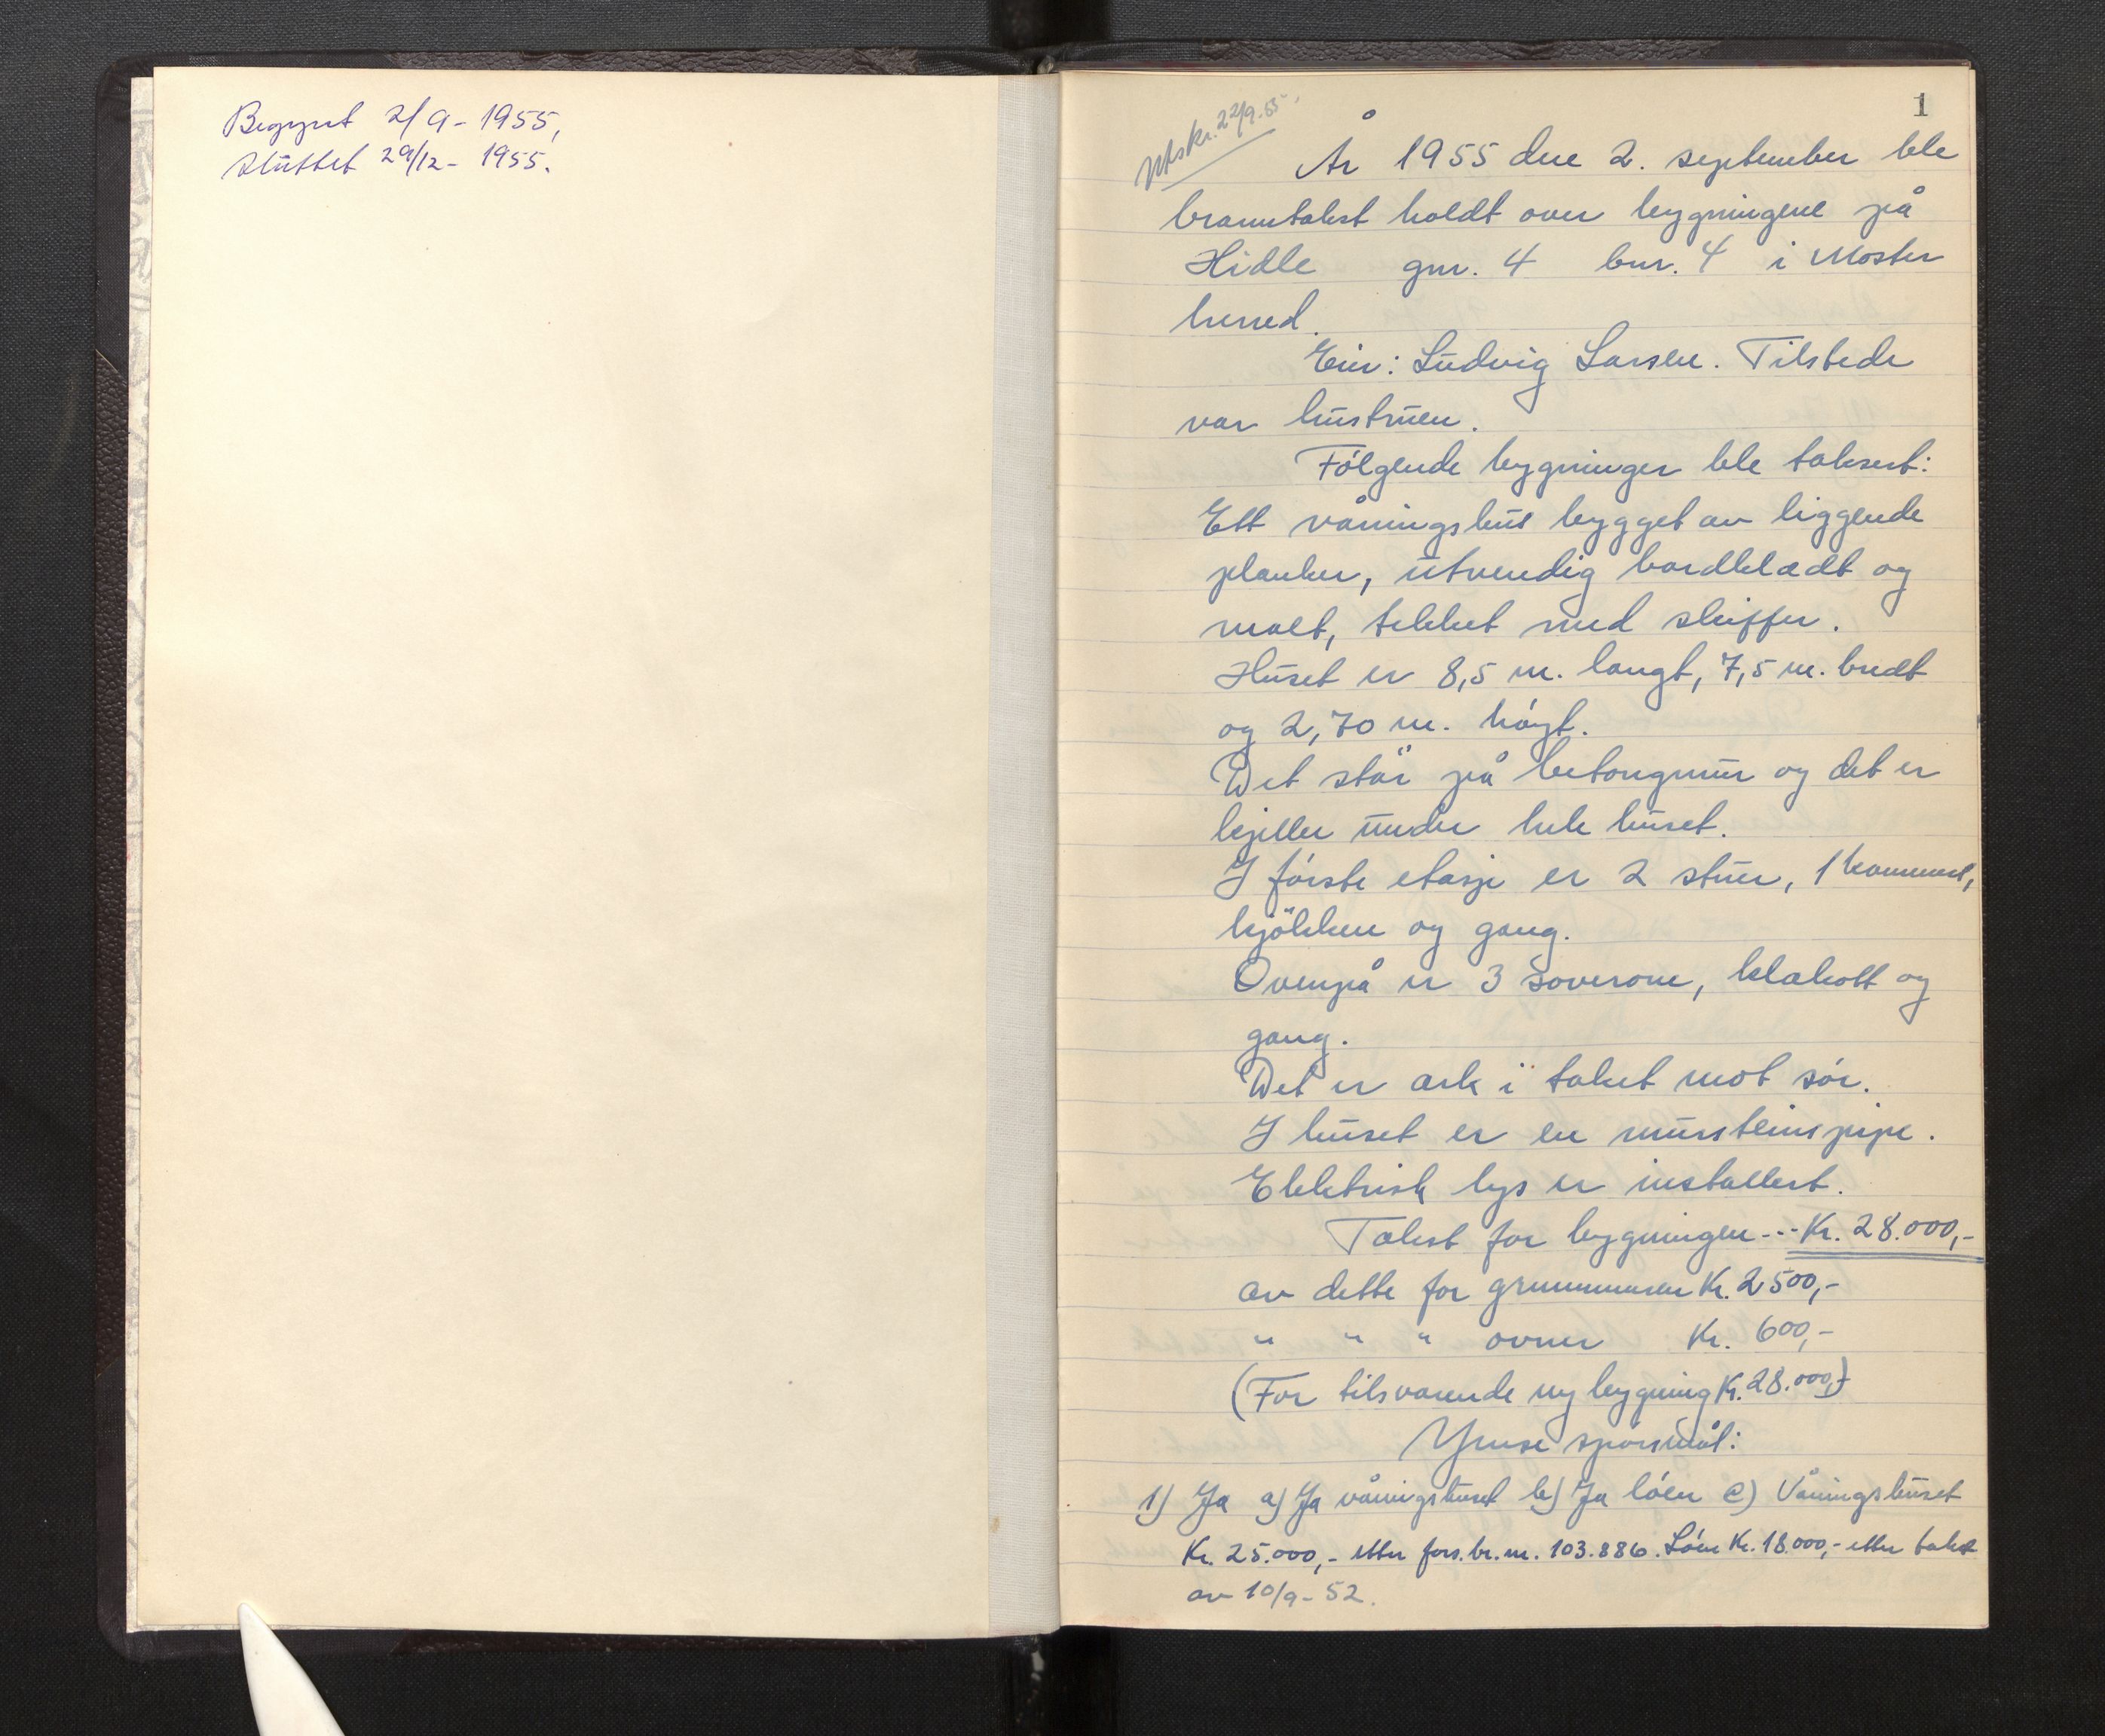 Begynt 2/9 - 1955,
Sluttet 29/12 - 1955.
1
Utskr. 22/9-55
År 1955 den 2. september ble
branntakst holdt over bygningene på
Hidle gnr. 4 bnr. 4 i Moster
herred.
Eier: Ludvig Larsen. Tilstede
var hustruen.
Følgende bygninger ble taksert:
Ett våningshus bygget av liggende
planker, utvendig bordkledt og
malt, tekket med skiffer.
Huset er 8,5 m. langt, 7,5 m. bredt
og 2,70 m. høygt.
Det står på betongmur og det er
kjeller under hele huset.
I første etasje er 2 stuer, 1 kammers,
kjøkken og gang.
Ovenpå er 3 soverom, klækott og
gang.
Det er ark i taket mot sør.
I huset er en mursteinspipe.
Elektrisk lys er installert.
Takst for bygningen --- Kr. 28.000,-
av dette for grunnmuren Kr. 2500,-
" " " ovner Kr. 600,-
(For tilsvarende ny bygning Kr. 28.000,-)
Ymse spørsmål:
1) Ja a) Ja våningshuset b) Ja løen c) Våningshuset
Kr. 25.000,- etter fors.br.nr. 103.886. Løen Kr. 18.000,- etter takst
av 10/9 - 52.